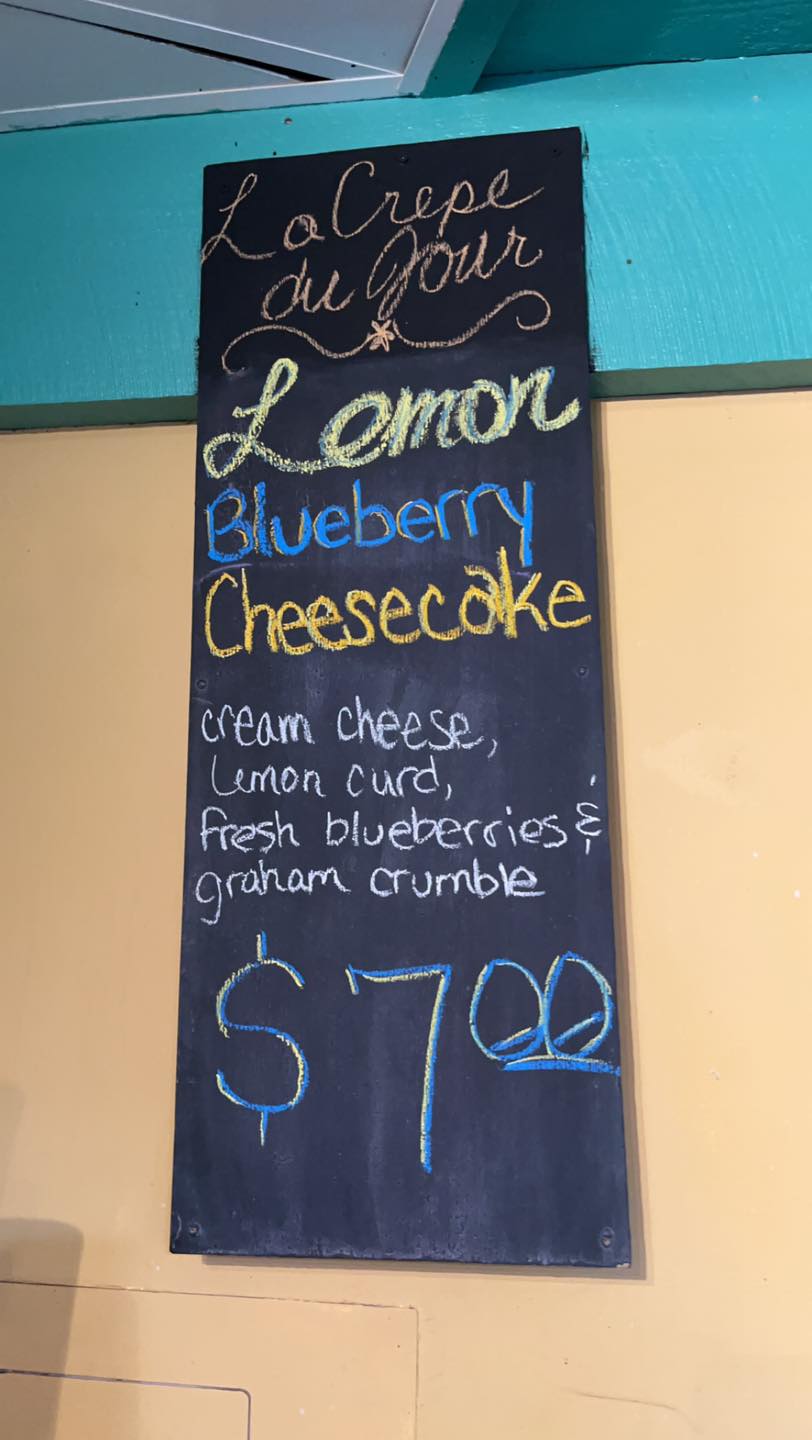 La Crepe
du Jour
Lemon
Blueberry
Cheesecake
cream cheese,
lemon curd,
fresh blueberries &
graham crumble
$700